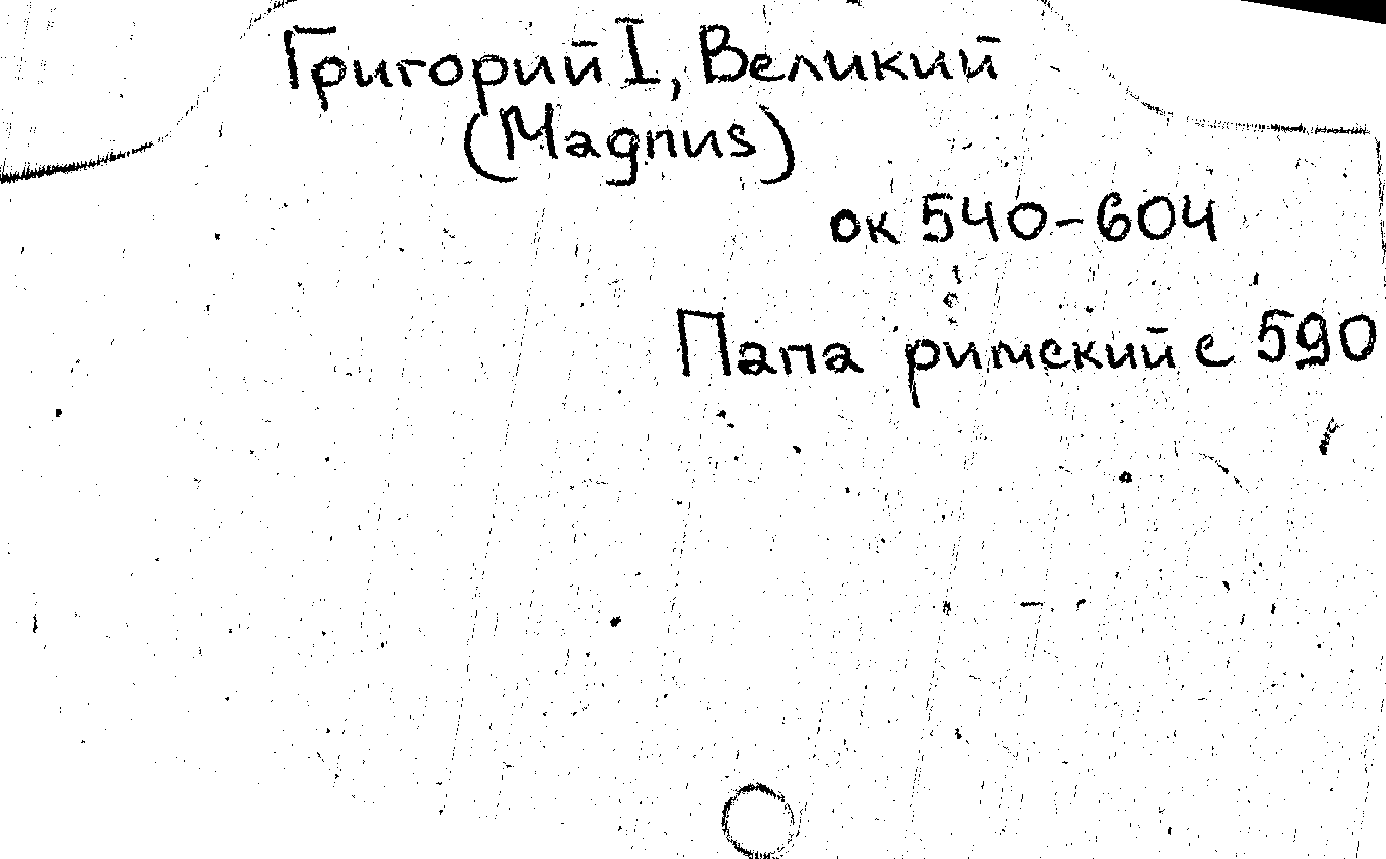 Григорий I, Великий
(Magnus)
ок 540-604
Папа римский с 590